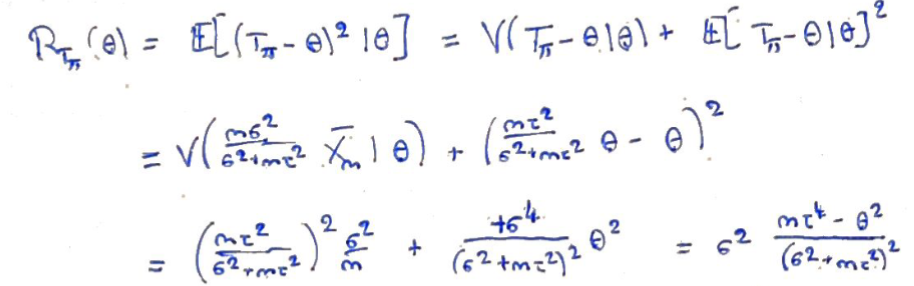 R_{T_π}(θ) = 𝔼[(T_π - θ)² | θ] = V(T_π - θ | θ) + 𝔼[T_π - θ | θ]²
= V( \frac{mσ²}{σ² + mτ²} \bar{X}_m | θ ) + ( \frac{mτ²}{σ² + mτ²} θ - θ )²
= ( \frac{mτ²}{σ² + mτ²} )² \frac{σ²}{m} + \frac{+σ⁴}{(σ² + mτ²)²} θ² = σ² \frac{mτ⁴ - θ²}{(σ² + mτ²)²}